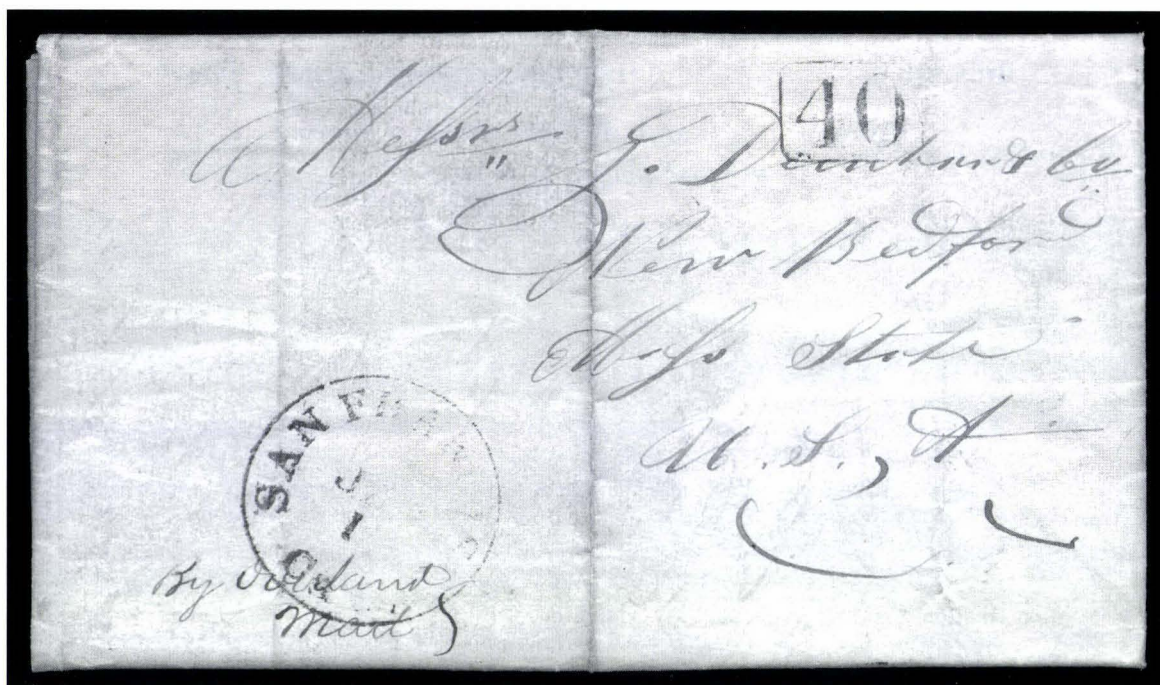 40
Messrs. G. &
New Bedford
Mass State
U. S., A
SAN
By Overland
Mail